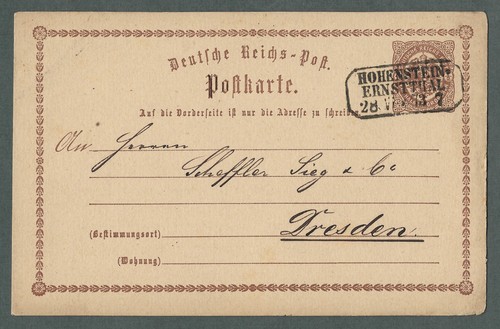 Deutsche Reichs-Post.
Postkarte.
HOHENSTEIN-
ERNSTTHAL
28
Auf die Vorderseite ist nur die Adresse zu schreiben
An Herren
Scheffler Sieg & Co
Dresden.
(Bestimmungsort)
(Wohnung)